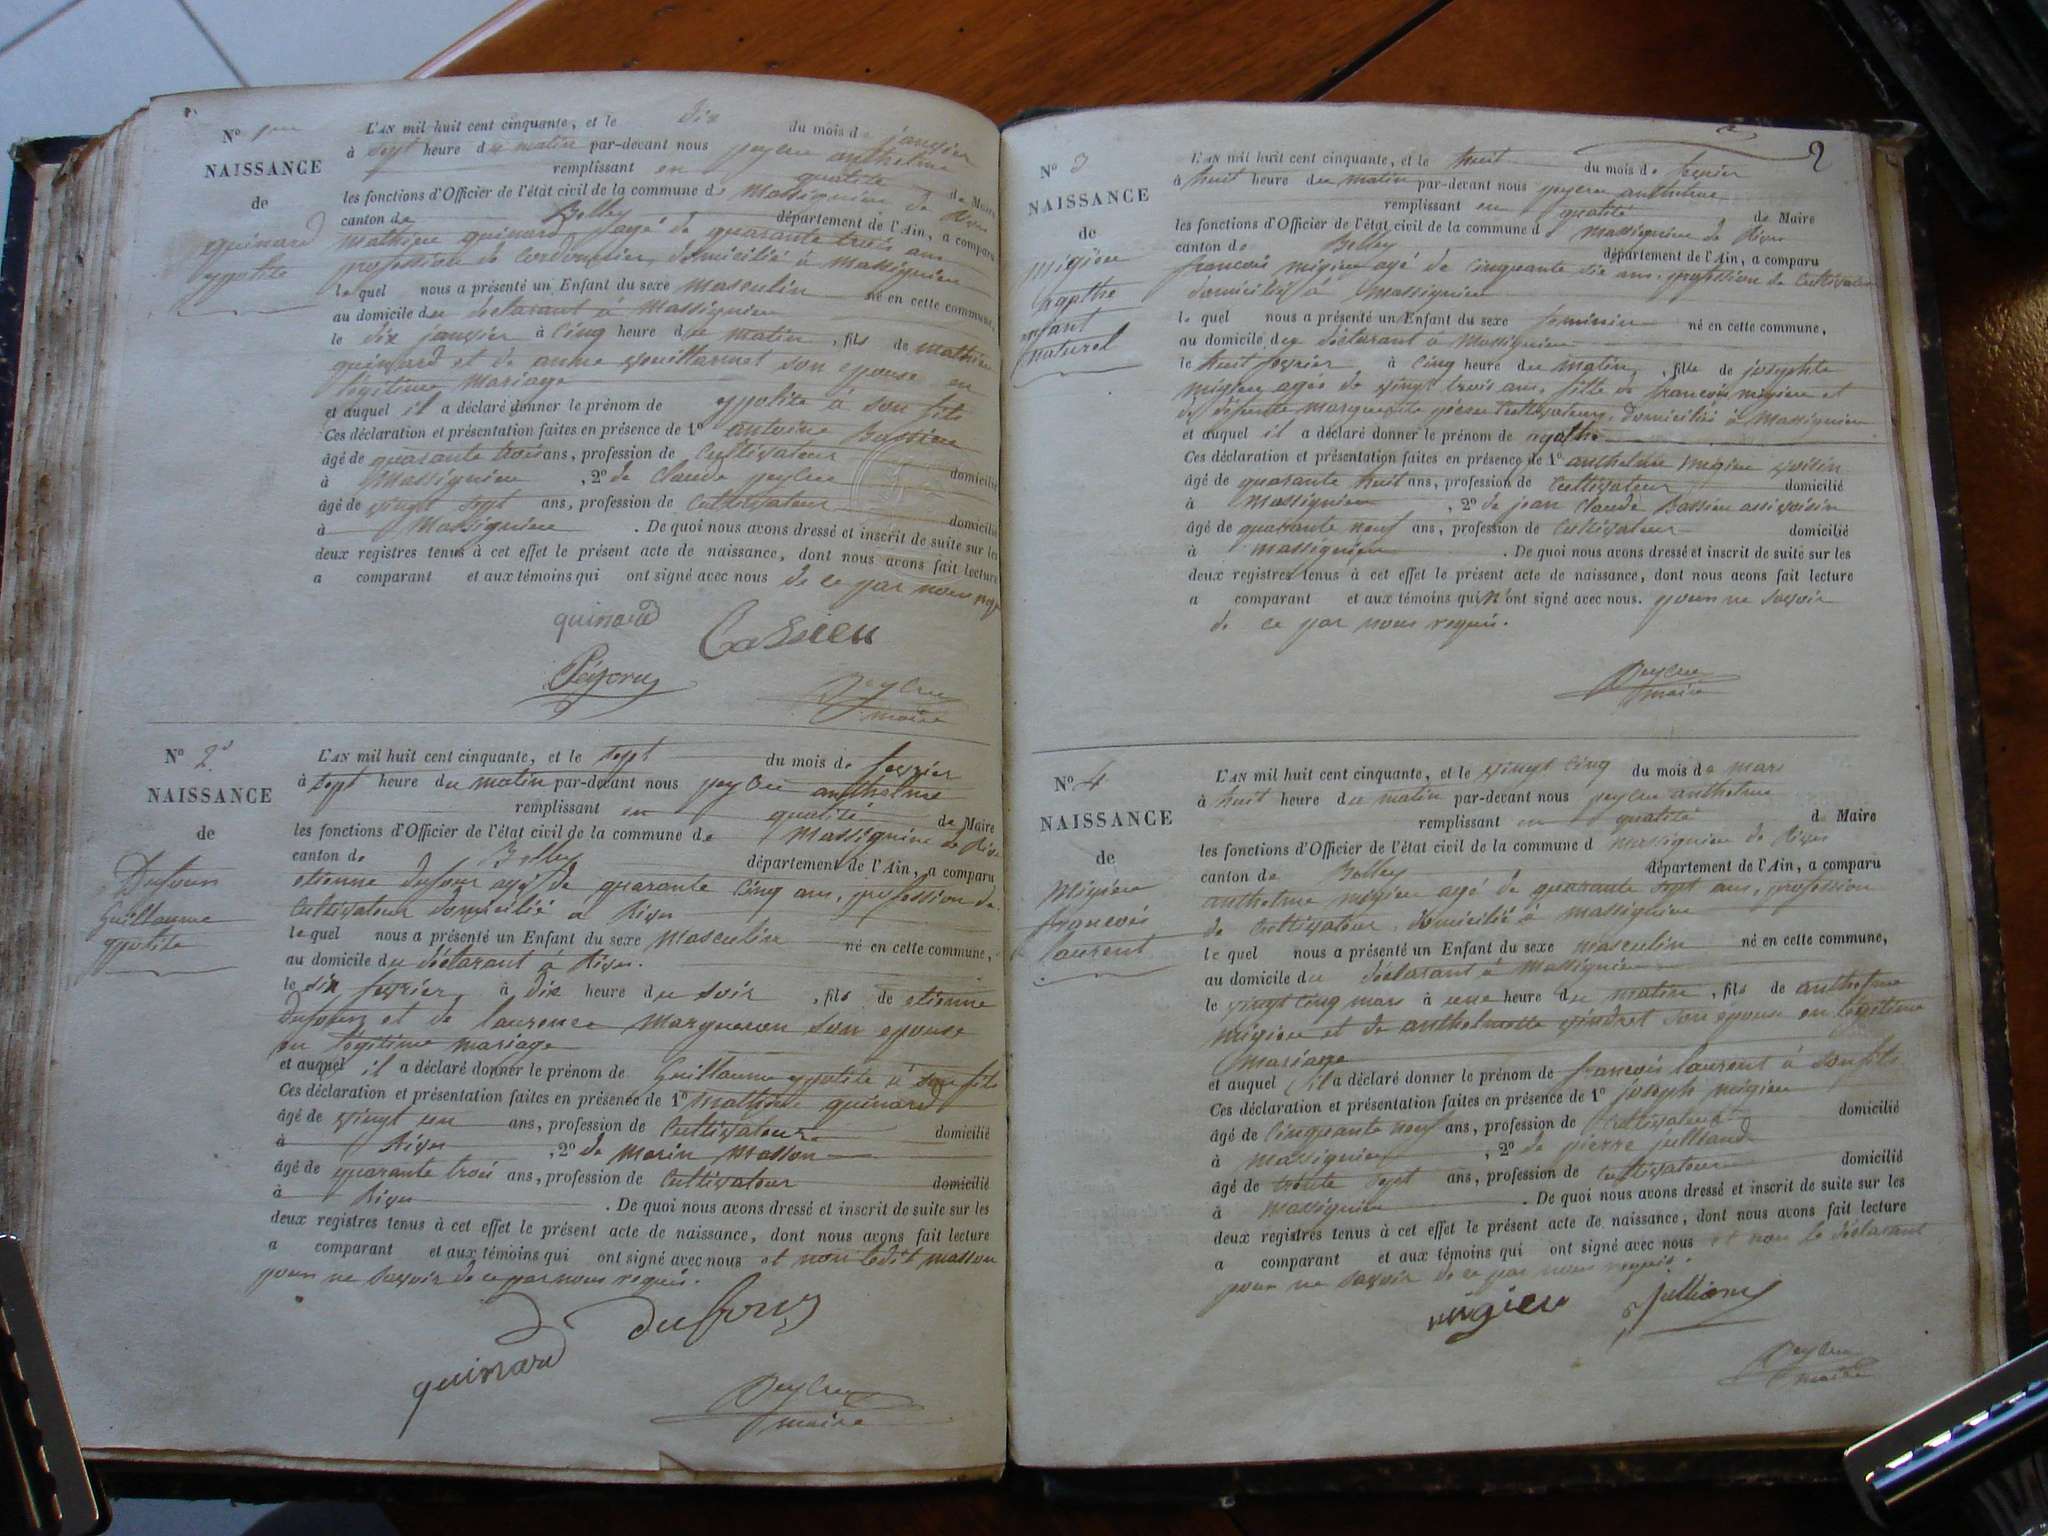 N° 1er
NAISSANCE
de
quinard
ypolite
L'AN mil huit cent cinquante, et le dix du mois de janvier
à sept heure du matin par-devant nous peycru anthelme
remplissant en qualité de Maire
les fonctions d'Officier de l'état civil de la commune de Massignieu de Rives
canton de Belley département de l'Ain, a comparu
mathieu quinard, agé de quarante trois ans
profession de Cordonnier, domicilié à Massignieu
le quel nous a présenté un Enfant du sexe masculin né en cette commune,
au domicile du déclarant à Massignieu
le dix janvier à cinq heure du matin, fils de mathieu
quinard et de anne son epouse en
légitime mariage
et auquel il a déclaré donner le prénom de ypolite à son fils
Ces déclaration et présentation faites en présence de 1° antoine Bassieu
âgé de quarante trois ans, profession de Cultivateur domicilié
à Massignieu, 2° de Claude peycru
âgé de vingt sept ans, profession de Cultivateur domicilié
à Massignieu. De quoi nous avons dressé et inscrit de suite sur les
deux registres tenus à cet effet le présent acte de naissance, dont nous avons fait lecture
a comparant et aux témoins qui ont signé avec nous de ce par nous requis
quinard
Peycru
peycru
maire
N° 2
NAISSANCE
de
Dufour
Guillaume
ypolite
L'AN mil huit cent cinquante, et le sept du mois de fevrier
à sept heure du matin par-devant nous peycru anthelme
remplissant en qualité de Maire
les fonctions d'Officier de l'état civil de la commune de Massignieu de Rives
canton de Belley département de l'Ain, a comparu
etienne dufour agé de quarante cinq ans, profession de
Cultivateur domicilié à Rives
le quel nous a présenté un Enfant du sexe Masculin né en cette commune,
au domicile du déclarant à Rives.
le six fevrier à dix heure du soir, fils de etienne
Dufour et de laurence Margueron son epouse
en légitime mariage
et auquel il a déclaré donner le prénom de Guillaume ypolite à son fils
Ces déclaration et présentation faites en présence de 1° Mathieu quinard
âgé de vingt un ans, profession de Cultivateur domicilié
à Rives, 2° de Marin Masson
âgé de quarante trois ans, profession de Cultivateur domicilié
à Rives. De quoi nous avons dressé et inscrit de suite sur les
deux registres tenus à cet effet le présent acte de naissance, dont nous avons fait lecture
a comparant et aux témoins qui ont signé avec nous et non ledit masson
pour ne savoir de ce par nous requis.
dufour
quinard
peycru
maire
2
N° 3
NAISSANCE
de
Migieu
agathe
enfant
naturel
L'AN mil huit cent cinquante, et le huit du mois de fevrier
à huit heure du matin par-devant nous peycru anthelme
remplissant en qualité de Maire
les fonctions d'Officier de l'état civil de la commune d Massignieu de Rives
canton de Belley département de l'Ain, a comparu
francois migieu agé de cinquante dix ans, profession de Cultivateur
domicilié à Massignieu
le quel nous a présenté un Enfant du sexe feminin né en cette commune,
au domicile du déclarant à Massignieu
le huit fevrier à cinq heure du matin, fille de josephte
migieu agée de vingt trois ans, fille de francois migieu et
de défunte marguerite cultivateurs, domiciliés à Massignieu
et auquel il a déclaré donner le prénom de agathe
Ces déclaration et présentation faites en présence de 1° anthelme Migieu voisin
âgé de quarante huit ans, profession de Cultivateur domicilié
à Massignieu, 2° de jean Claude Bassieu aussi voisin
âgé de quarante neuf ans, profession de Cultivateur domicilié
à Massignieu. De quoi nous avons dressé et inscrit de suite sur les
deux registres tenus à cet effet le présent acte de naissance, dont nous avons fait lecture
a comparant et aux témoins qui n'ont signé avec nous. pour ne savoir
de ce par nous requis.
peycru
maire
N° 4
NAISSANCE
de
Migieu
francois
laurent
L'AN mil huit cent cinquante, et le vingt cinq du mois de mars
à huit heure du matin par-devant nous peycru anthelme
remplissant en qualité d Maire
les fonctions d'Officier de l'état civil de la commune d Massignieu de Rives
canton de Belley département de l'Ain, a comparu
anthelme migieu agé de quarante sept ans, profession
de Cultivateur, domicilié à Massignieu
le quel nous a présenté un Enfant du sexe masculin né en cette commune,
au domicile du déclarant à Massignieu
le vingt cinq mars à une heure du matin, fils de anthelme
migieu et de anthelmette vindret son epouse en légitime
mariage
et auquel il a déclaré donner le prénom de francois laurent à son fils
Ces déclaration et présentation faites en présence de 1° joseph migieu
âgé de cinquante neuf ans, profession de Cultivateur domicilié
à Massignieu, 2° de pierre julliand
âgé de trente sept ans, profession de Cultivateur domicilié
à Massignieu. De quoi nous avons dressé et inscrit de suite sur les
deux registres tenus à cet effet le présent acte de naissance, dont nous avons fait lecture
a comparant et aux témoins qui ont signé avec nous et non le déclarant
pour ne savoir de ce par nous requis.
migieu
Julliand
peycru
maire